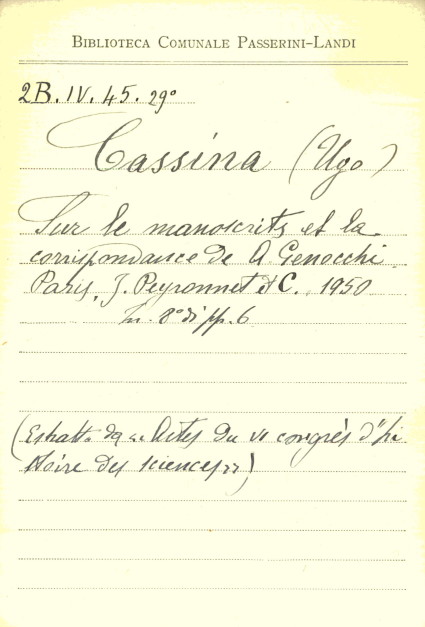 BIBLIOTECA COMUNALE PASSERINI-LANDI
2B. IV. 45. 29°
Cassina (Ugo)
Sur le manoscrits et la
corrispondance de A. Genocchi
Paris, J. Peyronnet et C. 1950
in 8° di pp. 6
(Estratto da "Actes du VI congrès d'hi
stoire des sciences")